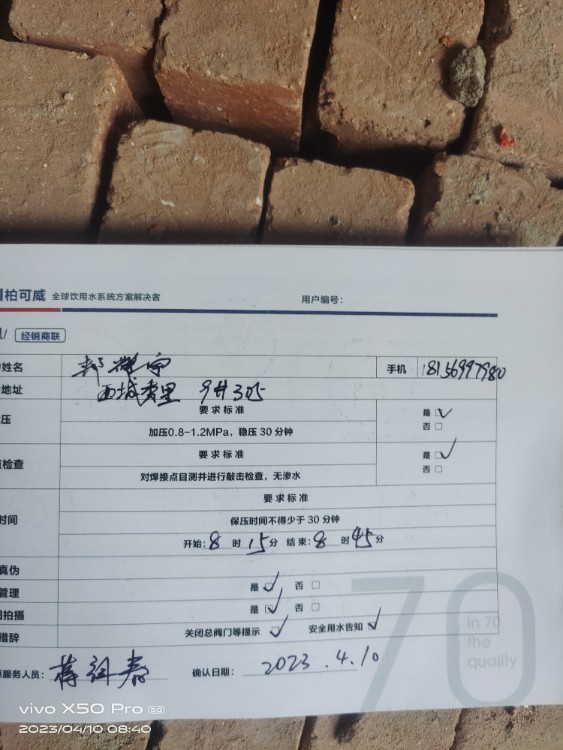 柏可威 全球饮用水系统方案解决者 用户编号：
经销商联
姓名 手机 18156997980
地址 西城 里 9#305
压 要求标准 是 ☑
加压0.8-1.2MPa，稳压 30 分钟 否 □
检查 要求标准 是 ☑
对焊接点目测并进行敲击检查，无渗水 否 □
要求标准
时间 保压时间不得少于 30 分钟
开始：8 时 15 分 结束：8 时 45 分
真伪
管理 是 ☑ 否 □
拍摄 是 ☑ 否 □
措辞 关闭总阀门等提示 ☑ 安全用水告知 ✓
服务人员： 确认日期： 2023.4.10
70
In 70
the
quality
vivo X50 Pro 5G
2023/04/10 08:40